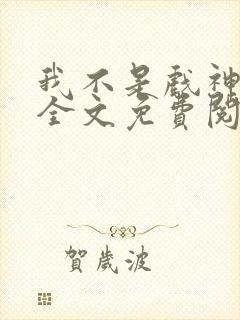 我不是戲神
全文免費閱
賀歲波